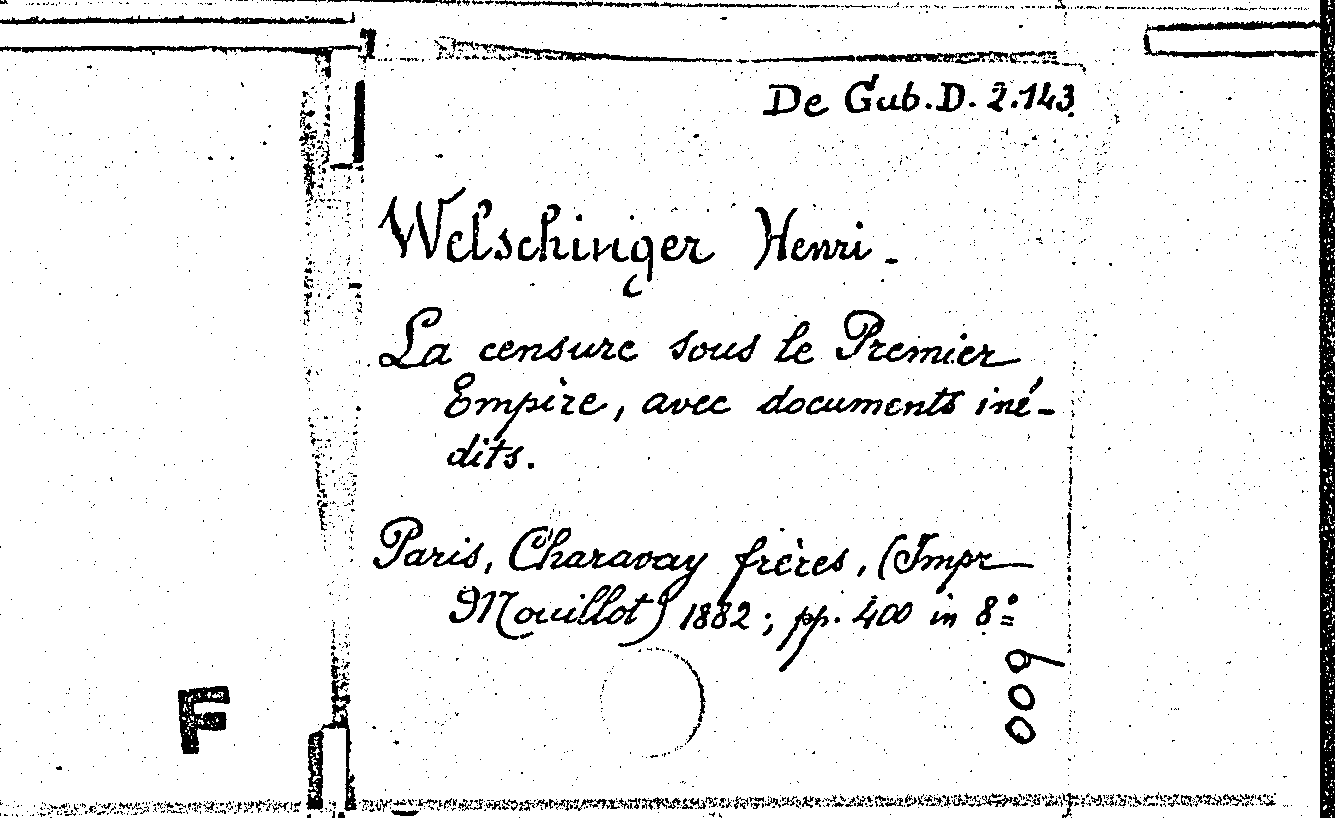 De Gub. D. 2.143
Welschinger Henri.
La censure sous le Premier
Empire, avec documents iné-
dits.
Paris, Charavay frères, (Impr
Mouillot) 1882; pp. 400 in 8º
600
F